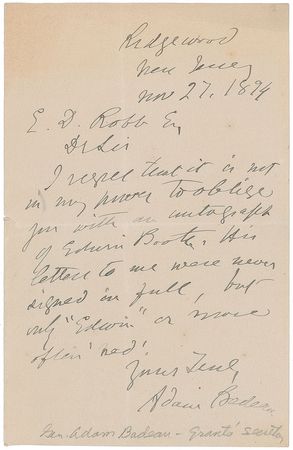 Ridgewood
New Jersey
Nov 27, 1894
E. D. Robb Esq
Dr Sir
I regret that it is not
in my power to oblige
you with an autograph
of Edwin Booth. His
letters to me were never
signed in full, but
only "Edwin" or more
often 'Ned'.
Yours Truly,
Adam Badeau
Gen. Adam Badeau - Grant's secretary